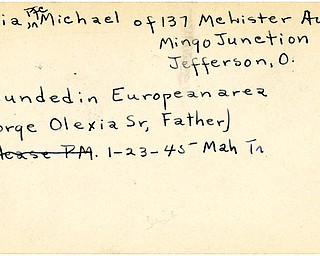 ia Pfc Michael of 137 McLister Au
Mingo Junction
Jefferson, O.
unded in European area
orge Olexia Sr, Father)
lease P.M. 1-23-45 Mah Tr